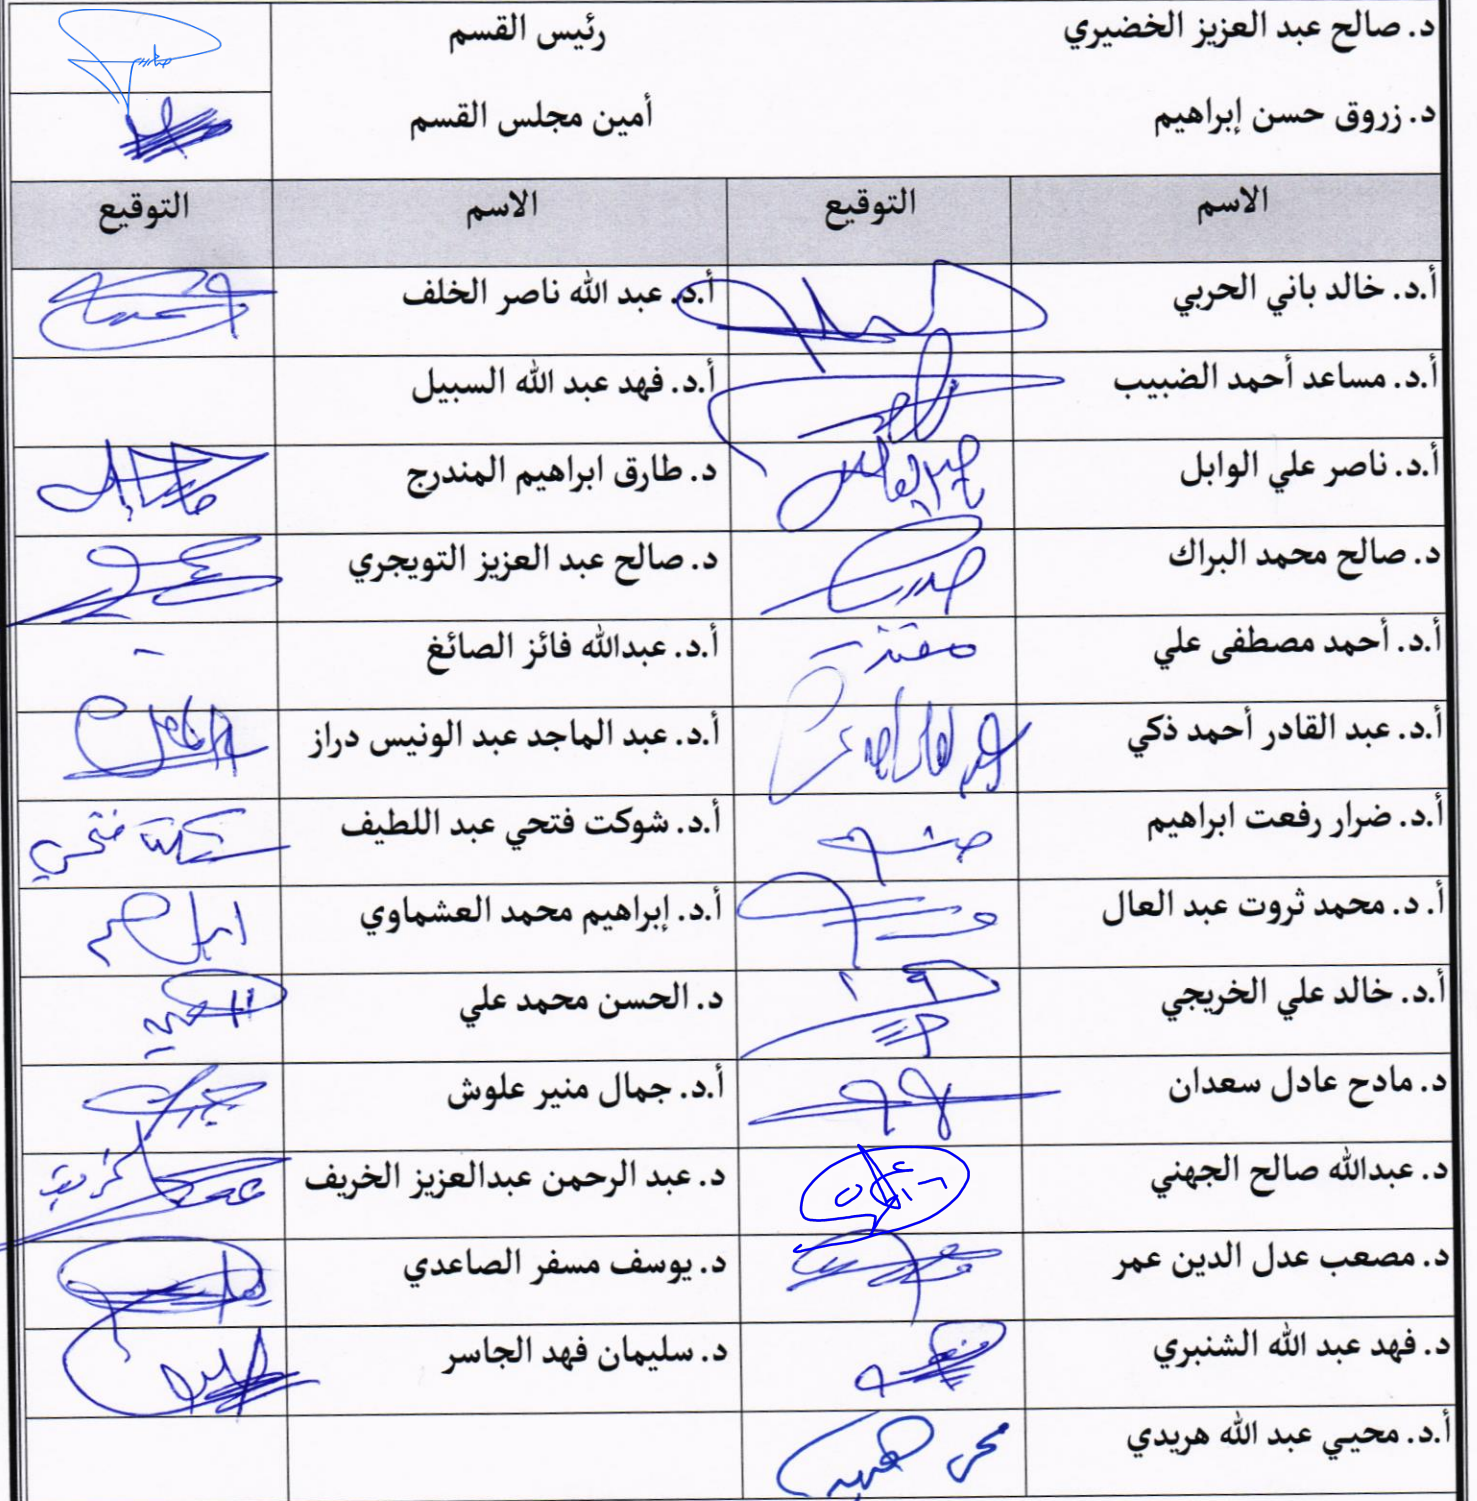 د. صالح عبد العزيز الخضيري رئيس القسم
د. زروق حسن إبراهيم أمين مجلس القسم
الاسم التوقيع الاسم التوقيع
أ.د. خالد باني الحربي أ.د. عبد الله ناصر الخلف
أ.د. مساعد أحمد الضبيب أ.د. فهد عبد الله السبيل
أ.د. ناصر علي الوابل د. طارق ابراهيم المندرج
د. صالح محمد البراك د. صالح عبد العزيز التويجري
أ.د. أحمد مصطفى علي أ.د. عبدالله فائز الصائغ
أ.د. عبد القادر أحمد ذكي أ.د. عبد الماجد عبد الونيس دراز
أ.د. ضرار رفعت ابراهيم أ.د. شوكت فتحي عبد اللطيف
أ. د. محمد ثروت عبد العال أ.د. إبراهيم محمد العشماوي
أ.د. خالد علي الخريجي د. الحسن محمد علي
د. مادح عادل سعدان أ.د. جمال منير علوش
د. عبدالله صالح الجهني د. عبد الرحمن عبدالعزيز الخريف
د. مصعب عدل الدين عمر د. يوسف مسفر الصاعدي
د. فهد عبد الله الشنبري د. سليمان فهد الجاسر
أ.د. محيي عبد الله هريدي